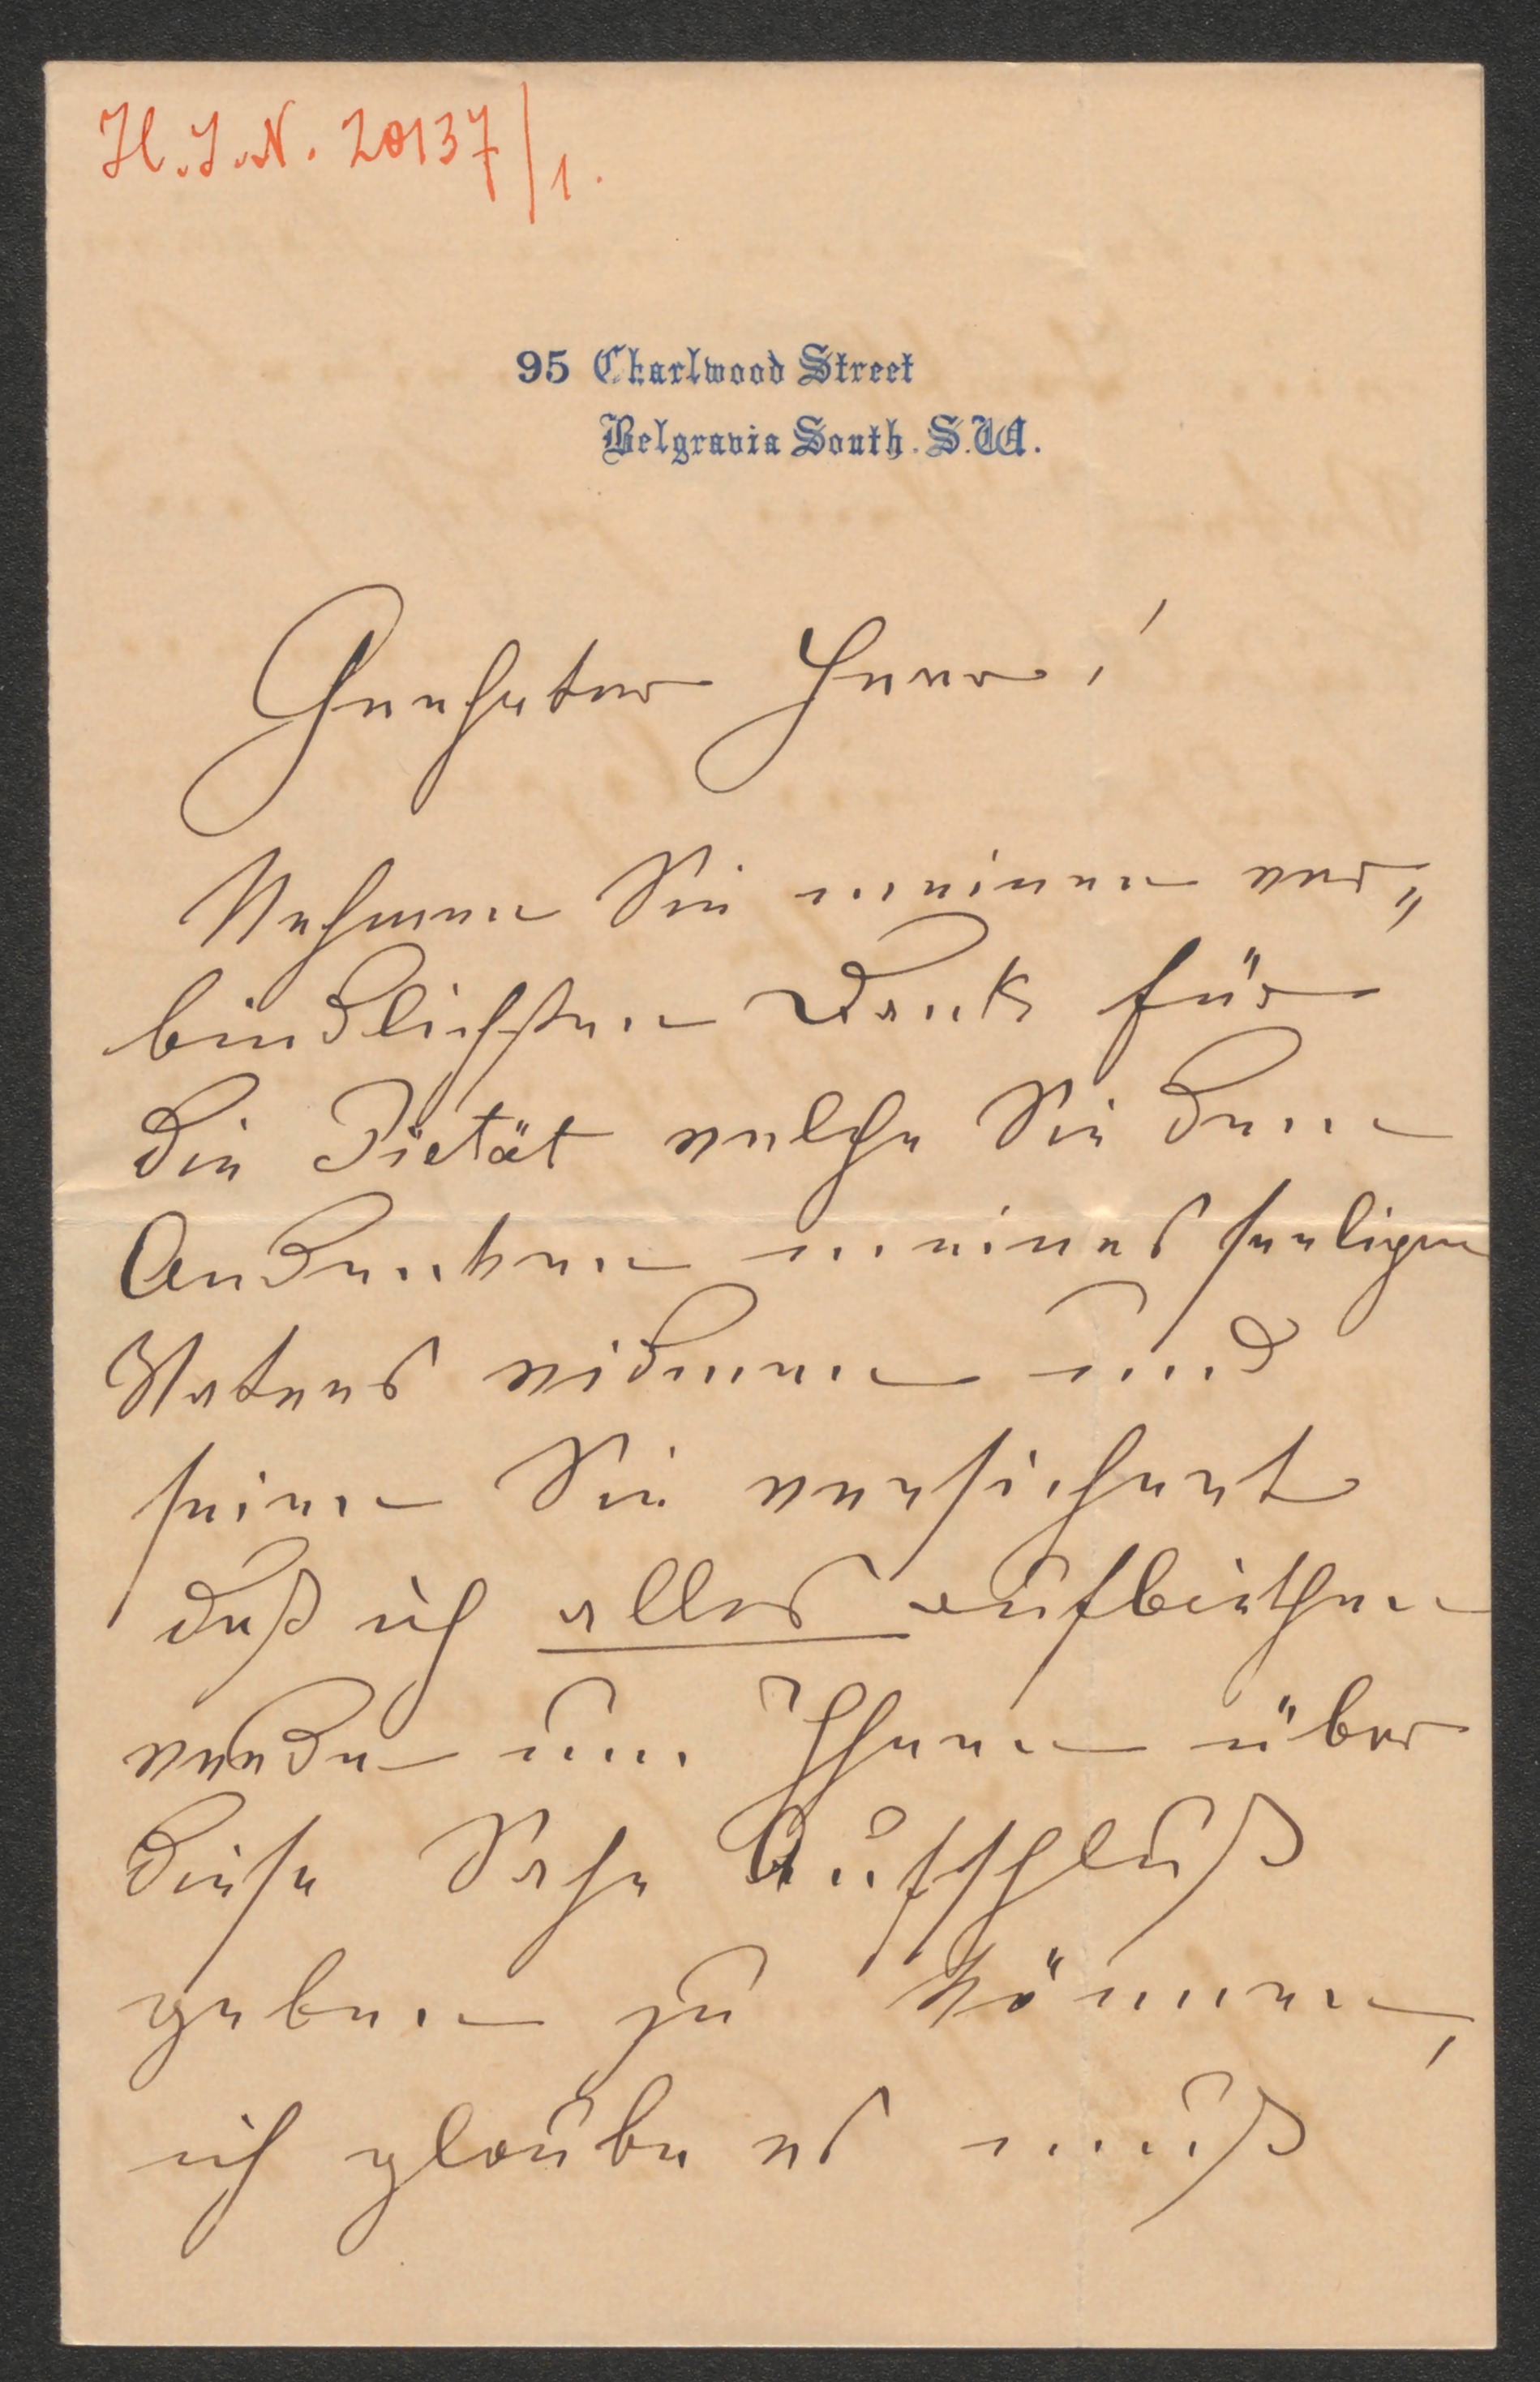 H.I.N. 20137/1.
95 Charlwood Street
Belgravia South. S.W.
Geehrter Herr!
Nehmen Sie meinen ver„
bindlichsten Dank für
die Pietät welche Sie dem
Andenken meines seeligen
Vaters widmen und
seien Sie versichert
daß ich alles aufbiethen
werde um Ihnen über
diese Sache Aufschluß
geben zu können,
ich glaube es muß